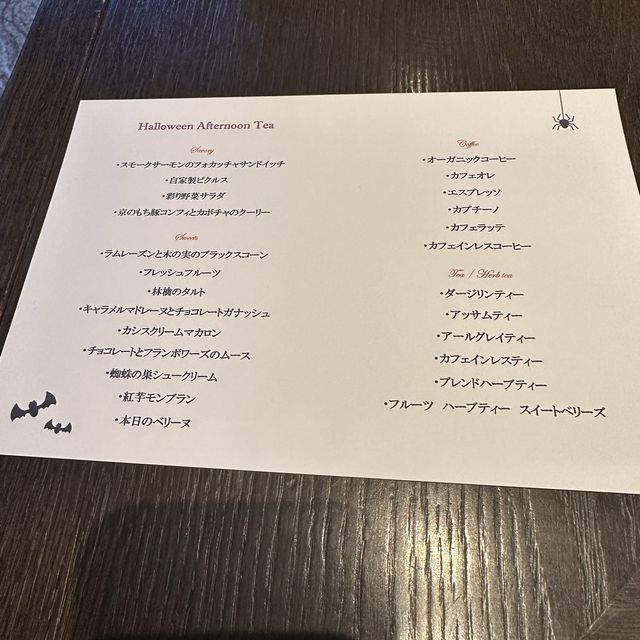 Halloween Afternoon Tea
Savory
・スモークサーモンのフォカッチャサンドイッチ
・自家製ピクルス
・彩り野菜サラダ
・京のもち豚コンフィとカボチャのクーリー
Sweets
・ラムレーズンと木の実のブラックスコーン
・フレッシュフルーツ
・林檎のタルト
・キャラメルマドレーヌとチョコレートガナッシュ
・カシスクリームマカロン
・チョコレートとフランボワーズのムース
・蜘蛛の巣シュークリーム
・紅芋モンブラン
・本日のベリーヌ
Coffee
・オーガニックコーヒー
・カフェオレ
・エスプレッソ
・カプチーノ
・カフェラッテ
・カフェインレスコーヒー
Tea / Herb tea
・ダージリンティー
・アッサムティー
・アールグレイティー
・カフェインレスティー
・ブレンドハーブティー
・フルーツ ハーブティー スイートベリーズ